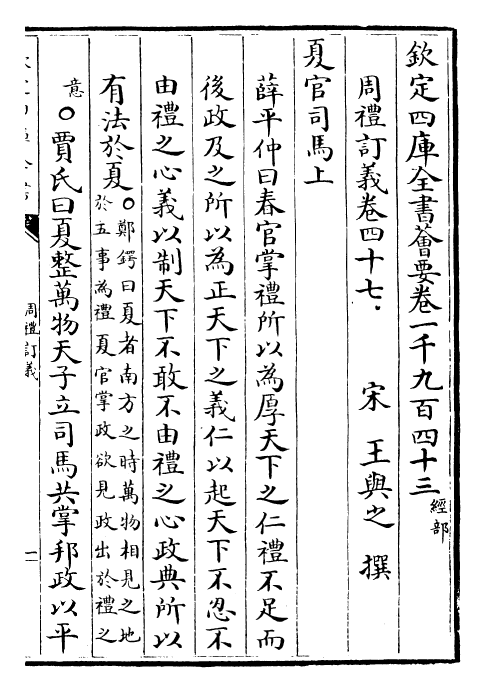 欽定四庫全書薈要卷一千九百四十三經部
周禮訂義卷四十七
宋　王與之　撰
夏官司馬上
薛平仲曰春官掌禮所以為厚天下之仁禮不足而
後政及之所以為正天下之義仁以起天下不忍不
由禮之心義以制天下不敢不由禮之心政典所以
有法於夏○鄭鍔曰夏者南方之時萬物相見之地
於五事為禮夏官掌政欲見政出於禮之
意○賈氏曰夏整萬物天子立司馬共掌邦政以平
周禮訂義
一